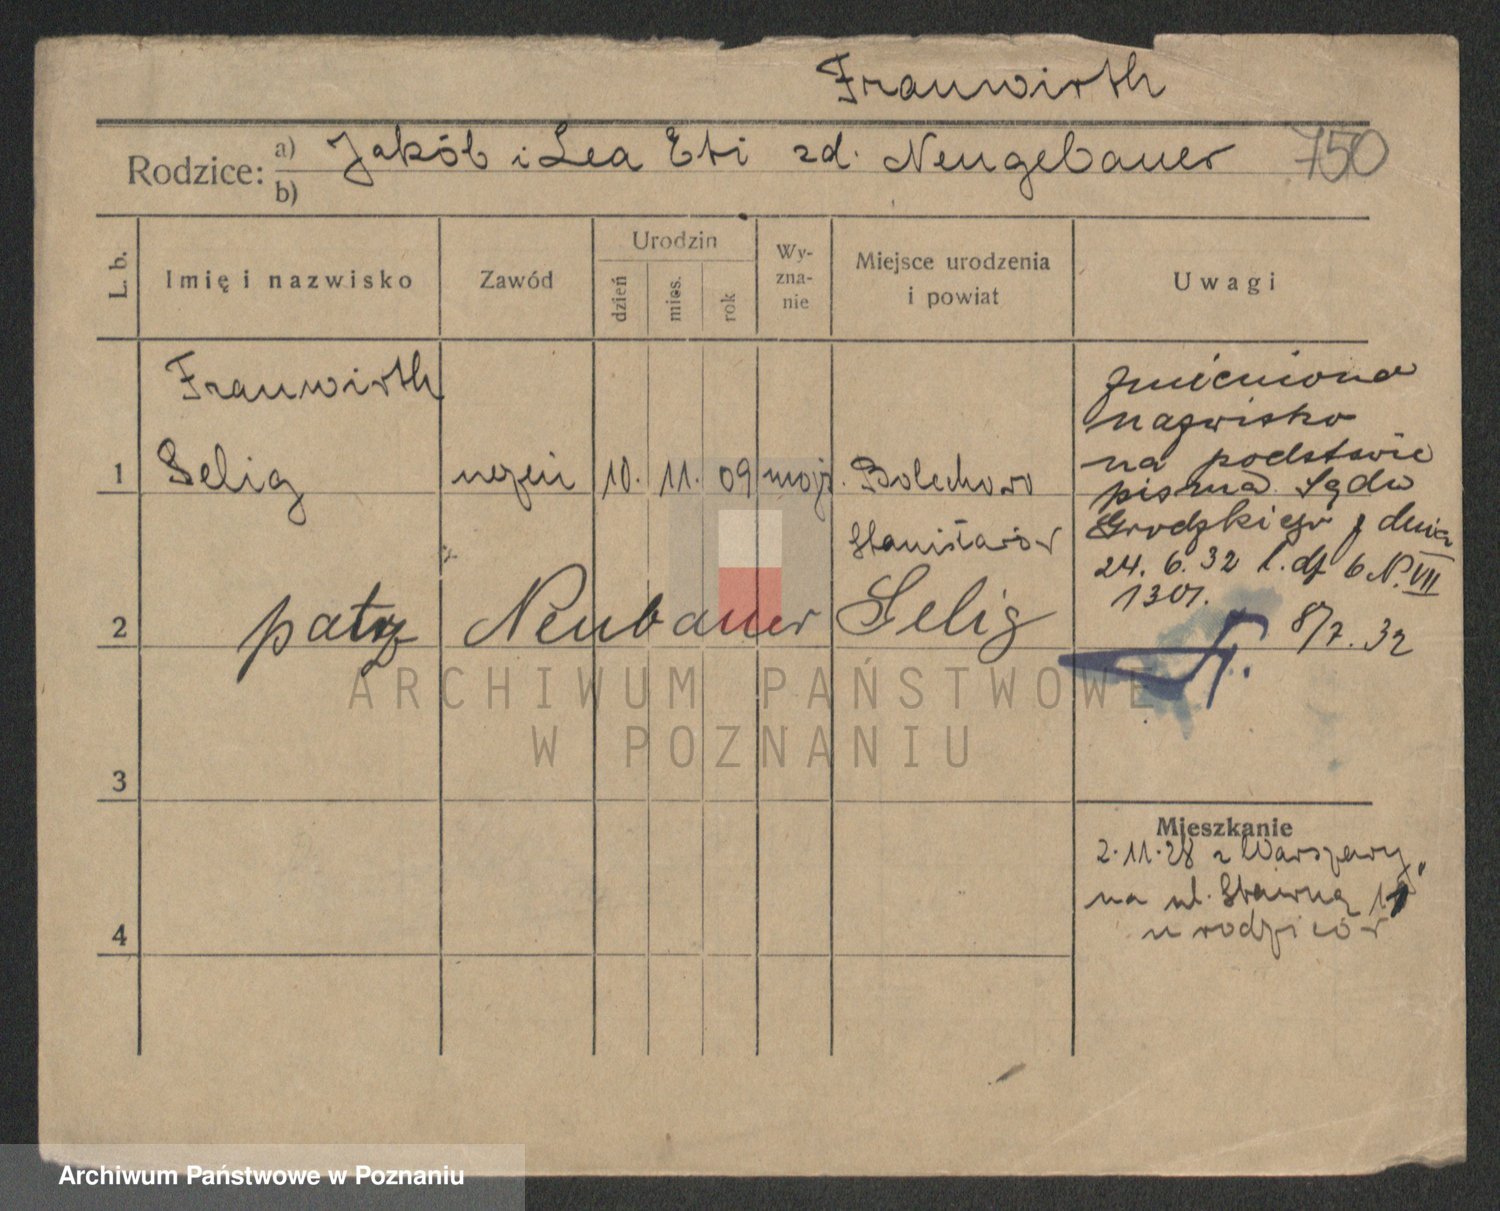 Frauwirth
Rodzice: a) Jakób i Lea Eti zd. Neugebauer 750
b)
L. b. Imię i nazwisko Zawód Urodzin dzień mies. rok Wy-zna-nie Miejsce urodzenia i powiat Uwagi
Frauwirth
1 Selig uczeń 10. 11. 09 mojż. Bolechowo
Stanisławów
zmieniono
nazwisko
na podstawie
pisma Sądu
Grodzkiego z dnia
24. 6. 32 l. dz 6 N. VII
1301.
8/7. 32
2 patrz Neubauer Selig
ARCHIWUM PAŃSTWOWE
W POZNANIU
3
Mieszkanie
2.11.28 z Warszawy
na ul. Stawną 11
u rodziców
4
Archiwum Państwowe w Poznaniu